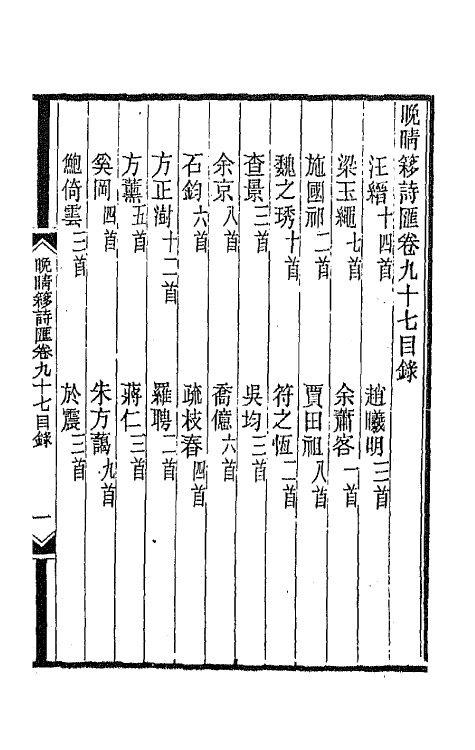 晚晴簃詩匯卷九十七目錄
汪縉十四首　趙曦明三首
梁玉繩七首　余蕭客一首
施國祁二首　賈田祖八首
魏之琇十首　符之恆二首
查景三首　吳均三首
余京八首　喬億六首
石鈞六首　疏枝春四首
方正澍十二首　羅聘二首
方薰五首　蔣仁三首
奚岡四首　朱方藹九首
鮑倚雲三首　於震三首
晚晴簃詩匯卷九十七目錄　一